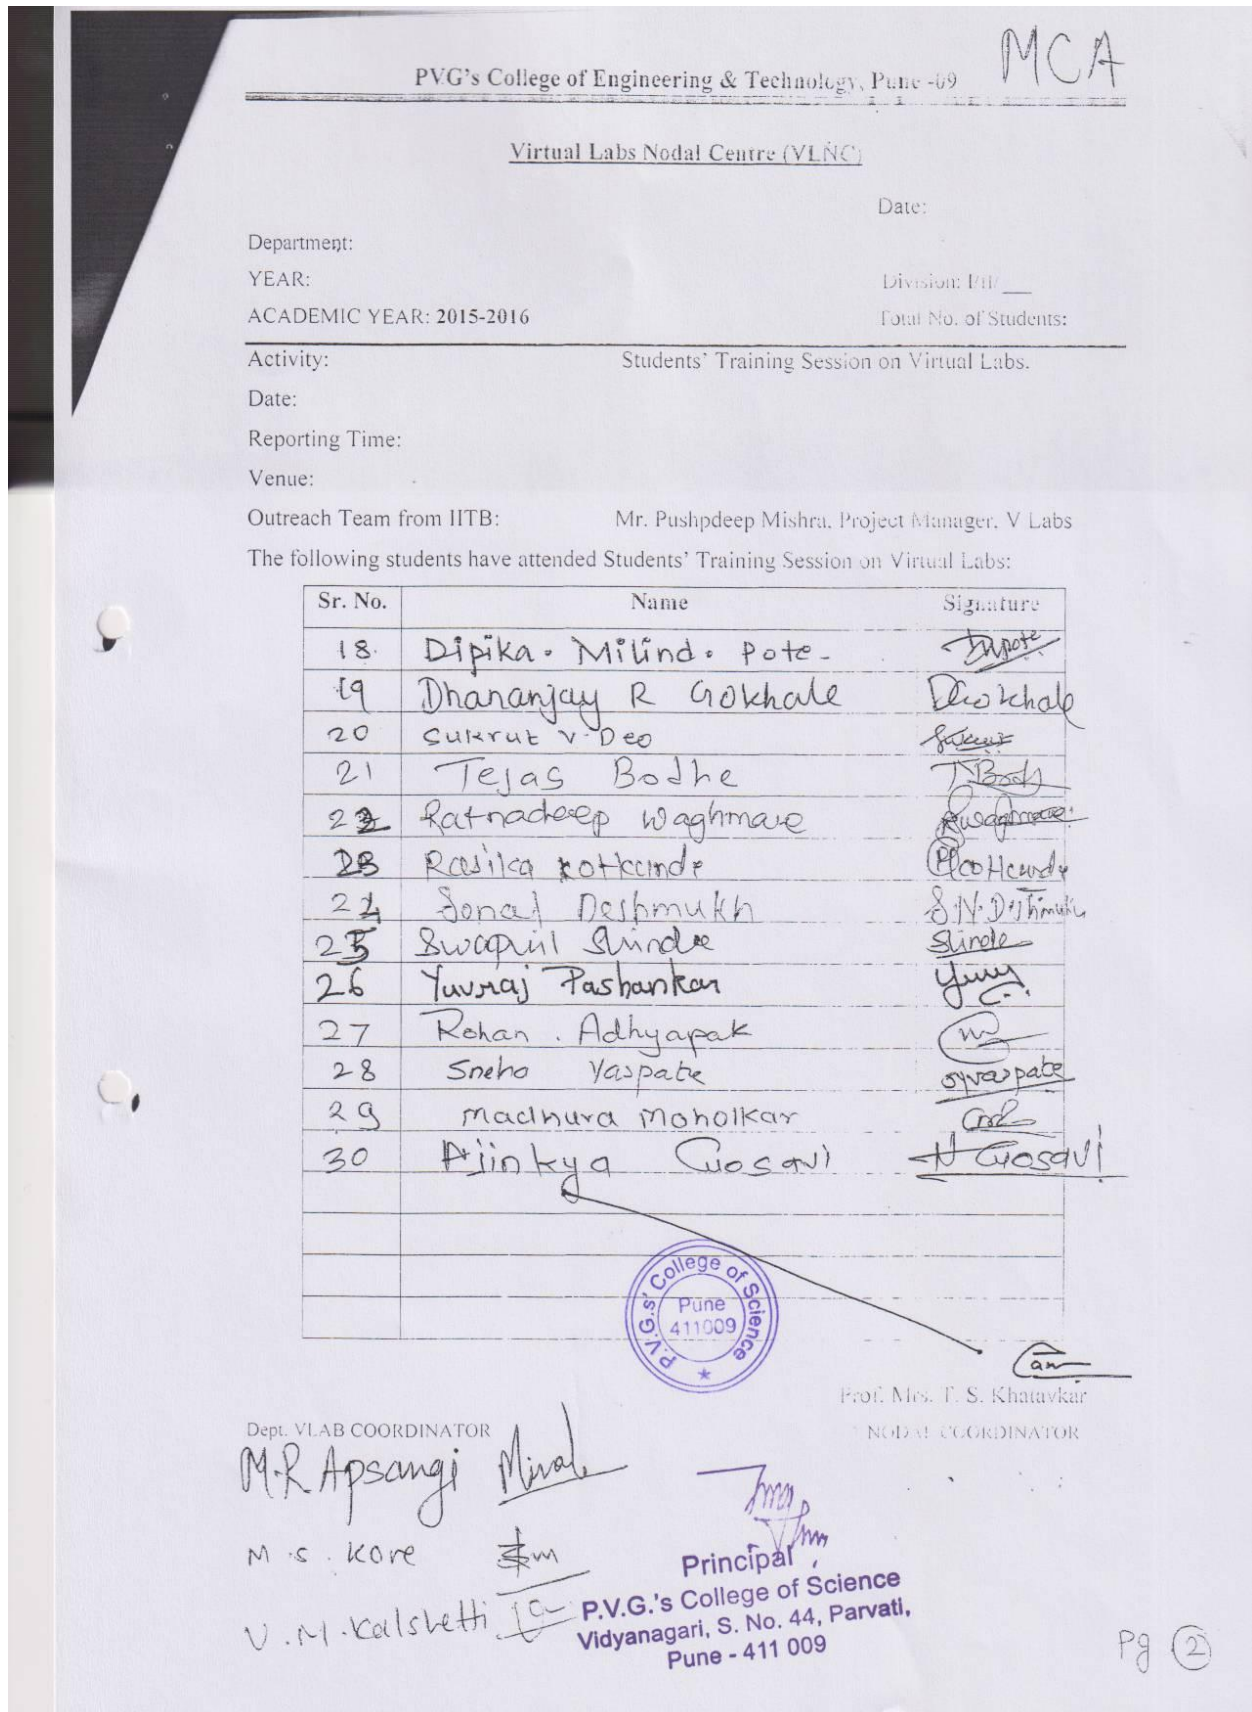 MCA
PVG's College of Engineering & Technology, Pune -09
Virtual Labs Nodal Centre (VLNC)
Date:
Department:
YEAR: Division: I/II/___
ACADEMIC YEAR: 2015-2016 Total No. of Students:
Activity: Students' Training Session on Virtual Labs.
Date:
Reporting Time:
Venue:
Outreach Team from IITB: Mr. Pushpdeep Mishra, Project Manager, V Labs
The following students have attended Students' Training Session on Virtual Labs:
Sr. No. Name Signature
18. Dipika. Milind. Pote. DMpote
19 Dhananjay R Gokhale DGokhale
20 Sukrut V. Deo
21 Tejas Bodhe T Bodh
22 Ratnadeep Waghmare RWaghmare
23 Rasika Kotkunde
24 Sonal Deshmukh
25 Swapnil Shinde Shinde
26 Yuvraj Pashankar
27 Rohan. Adhyapak
28 Sneha Yaspate syyaspate
29 Madhura Moholkar
30 Ajinkya Gosavi A Gosavi
P.V.G.s' College of Science
Pune
411009
Prof. Mrs. T. S. Khatavkar
Dept. VLAB COORDINATOR NODAL COORDINATOR
M.R Apsangi
M.S. Kore
V.M. Kalshetti
Principal
P.V.G.'s College of Science
Vidyanagari, S. No. 44, Parvati,
Pune - 411 009
Pg 2